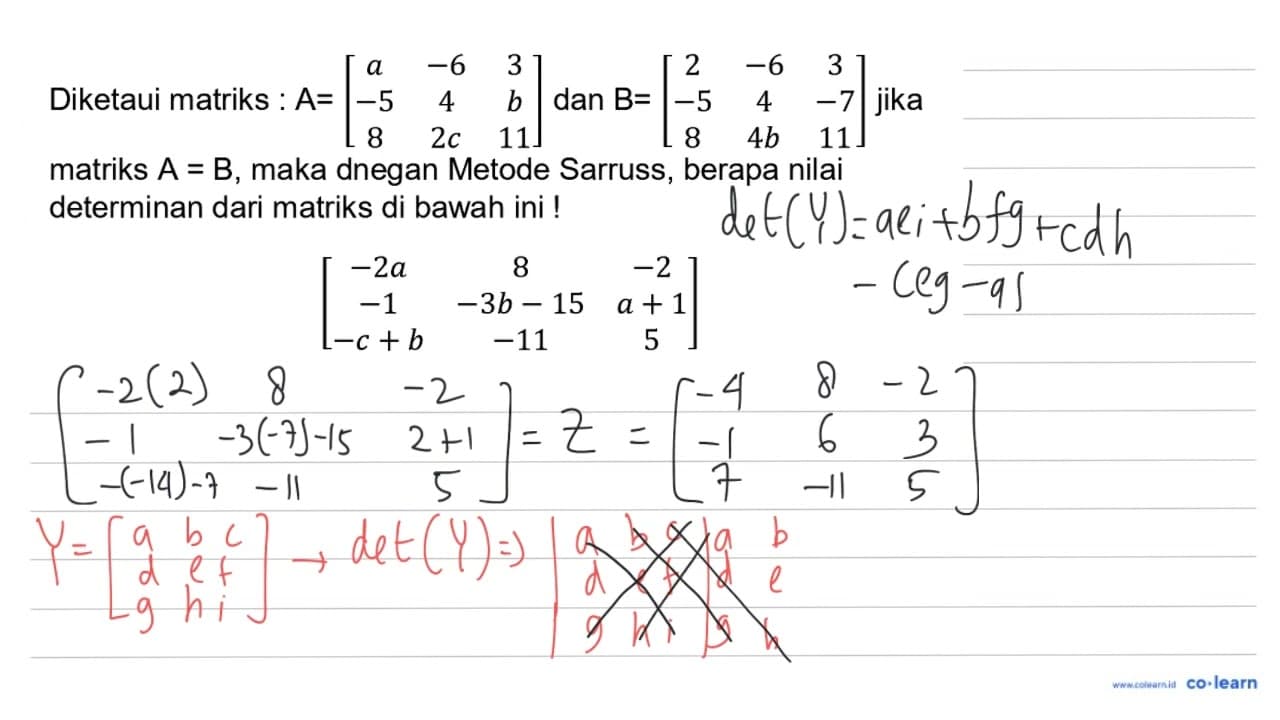 Diketaui matriks : A= [a −6 3; −5 4 b; 8 2c 11] dan B= [2 −6 3; −5 4 −7; 8 4b 11] jika
matriks A = B, maka dnegan Metode Sarruss, berapa nilai
determinan dari matriks di bawah ini !
det(Y)=aei+bfg+cdh
- ceg - a
[−2a 8 −2; −1 −3b − 15 a + 1; −c + b −11 5]
[-2(2) 8 -2; -1 -3(-7)-15 2+1; -(-14)-7 -11 5] = Z = [-4 8 -2; -1 6 3; 7 -11 5]
Y= [a b c; d e f; g h i] → det(Y) => |a b c; d e f; g h i| a b; d e; g h
www.colearn.id co·learn